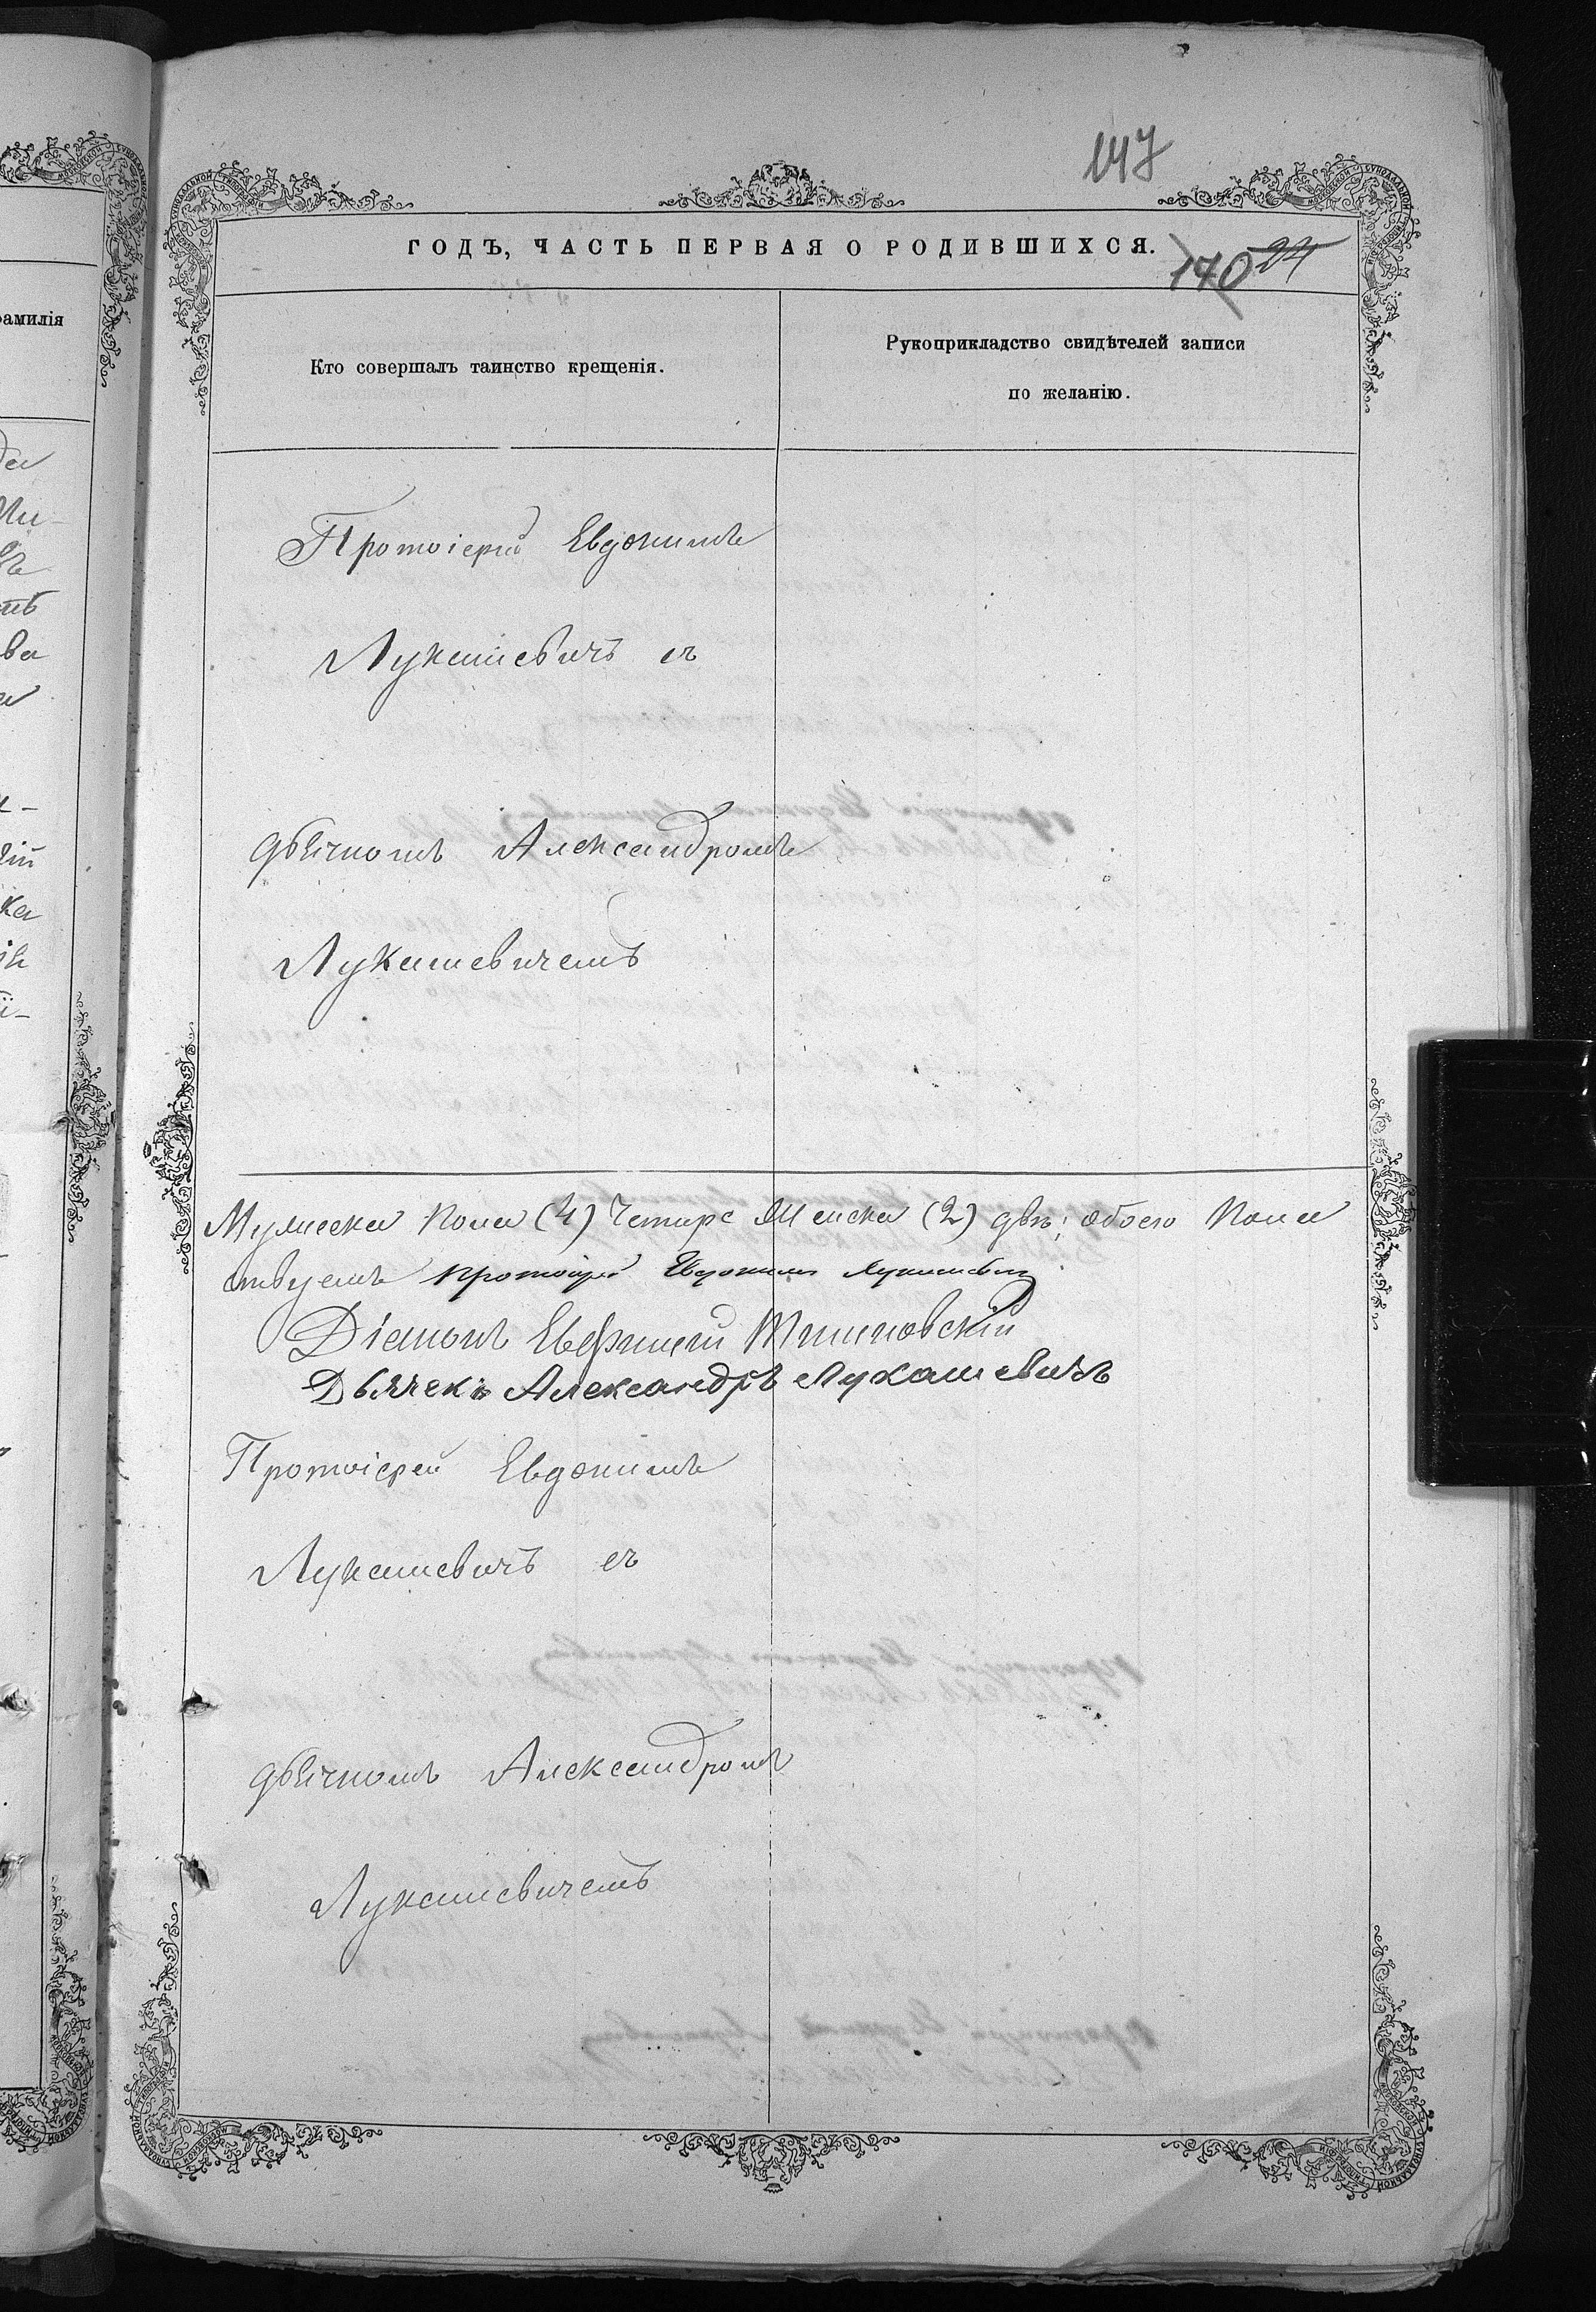 147
ГОДЪ, ЧАСТЬ ПЕРВАЯ О РОДИВШИХСЯ.
140 24
амилія
Кто совершалъ таинство крещенія.
Рукоприкладство свидѣтелей записи
по желанію.
Протоіерей Евдокимъ
Лукашевичъ съ
дьячкомъ Александромъ
Лукашевичемъ
Мужеска пола (4) Четыре Женска (2) двѣ; обоего пола
ствуемъ протоіерей Евдокимъ Лукашевичъ
Діаконъ Евфимій
Дьячекъ Александръ Лукашевичъ
Протоіерей Евдокимъ
Лукашевичъ съ
дьячкомъ Александромъ
Лукашевичемъ